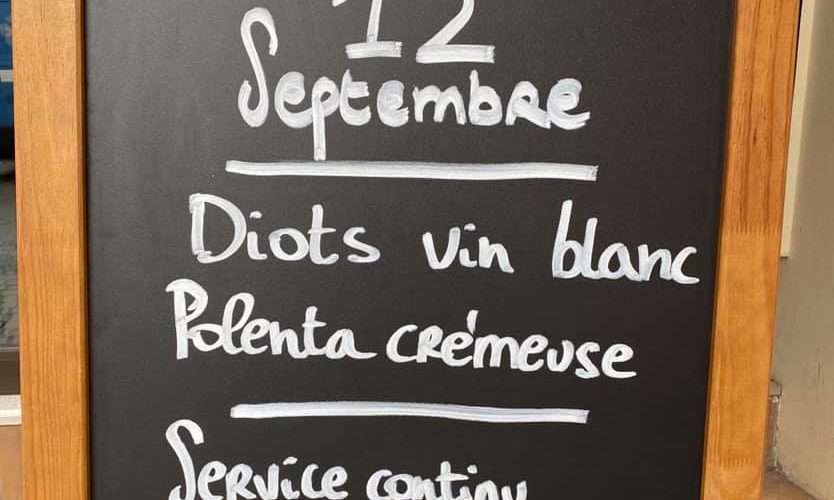 12
Septembre
Diots vin blanc
Polenta crémeuse
Service continu